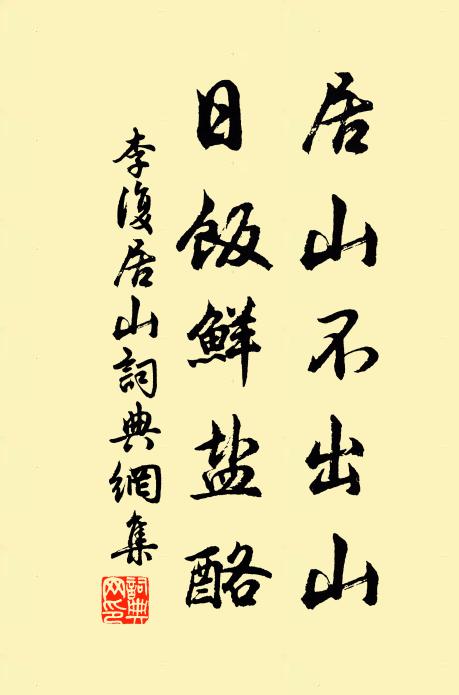 居山不出山
日飯鮮盐酪
李復居山詞典網集
詞典網印